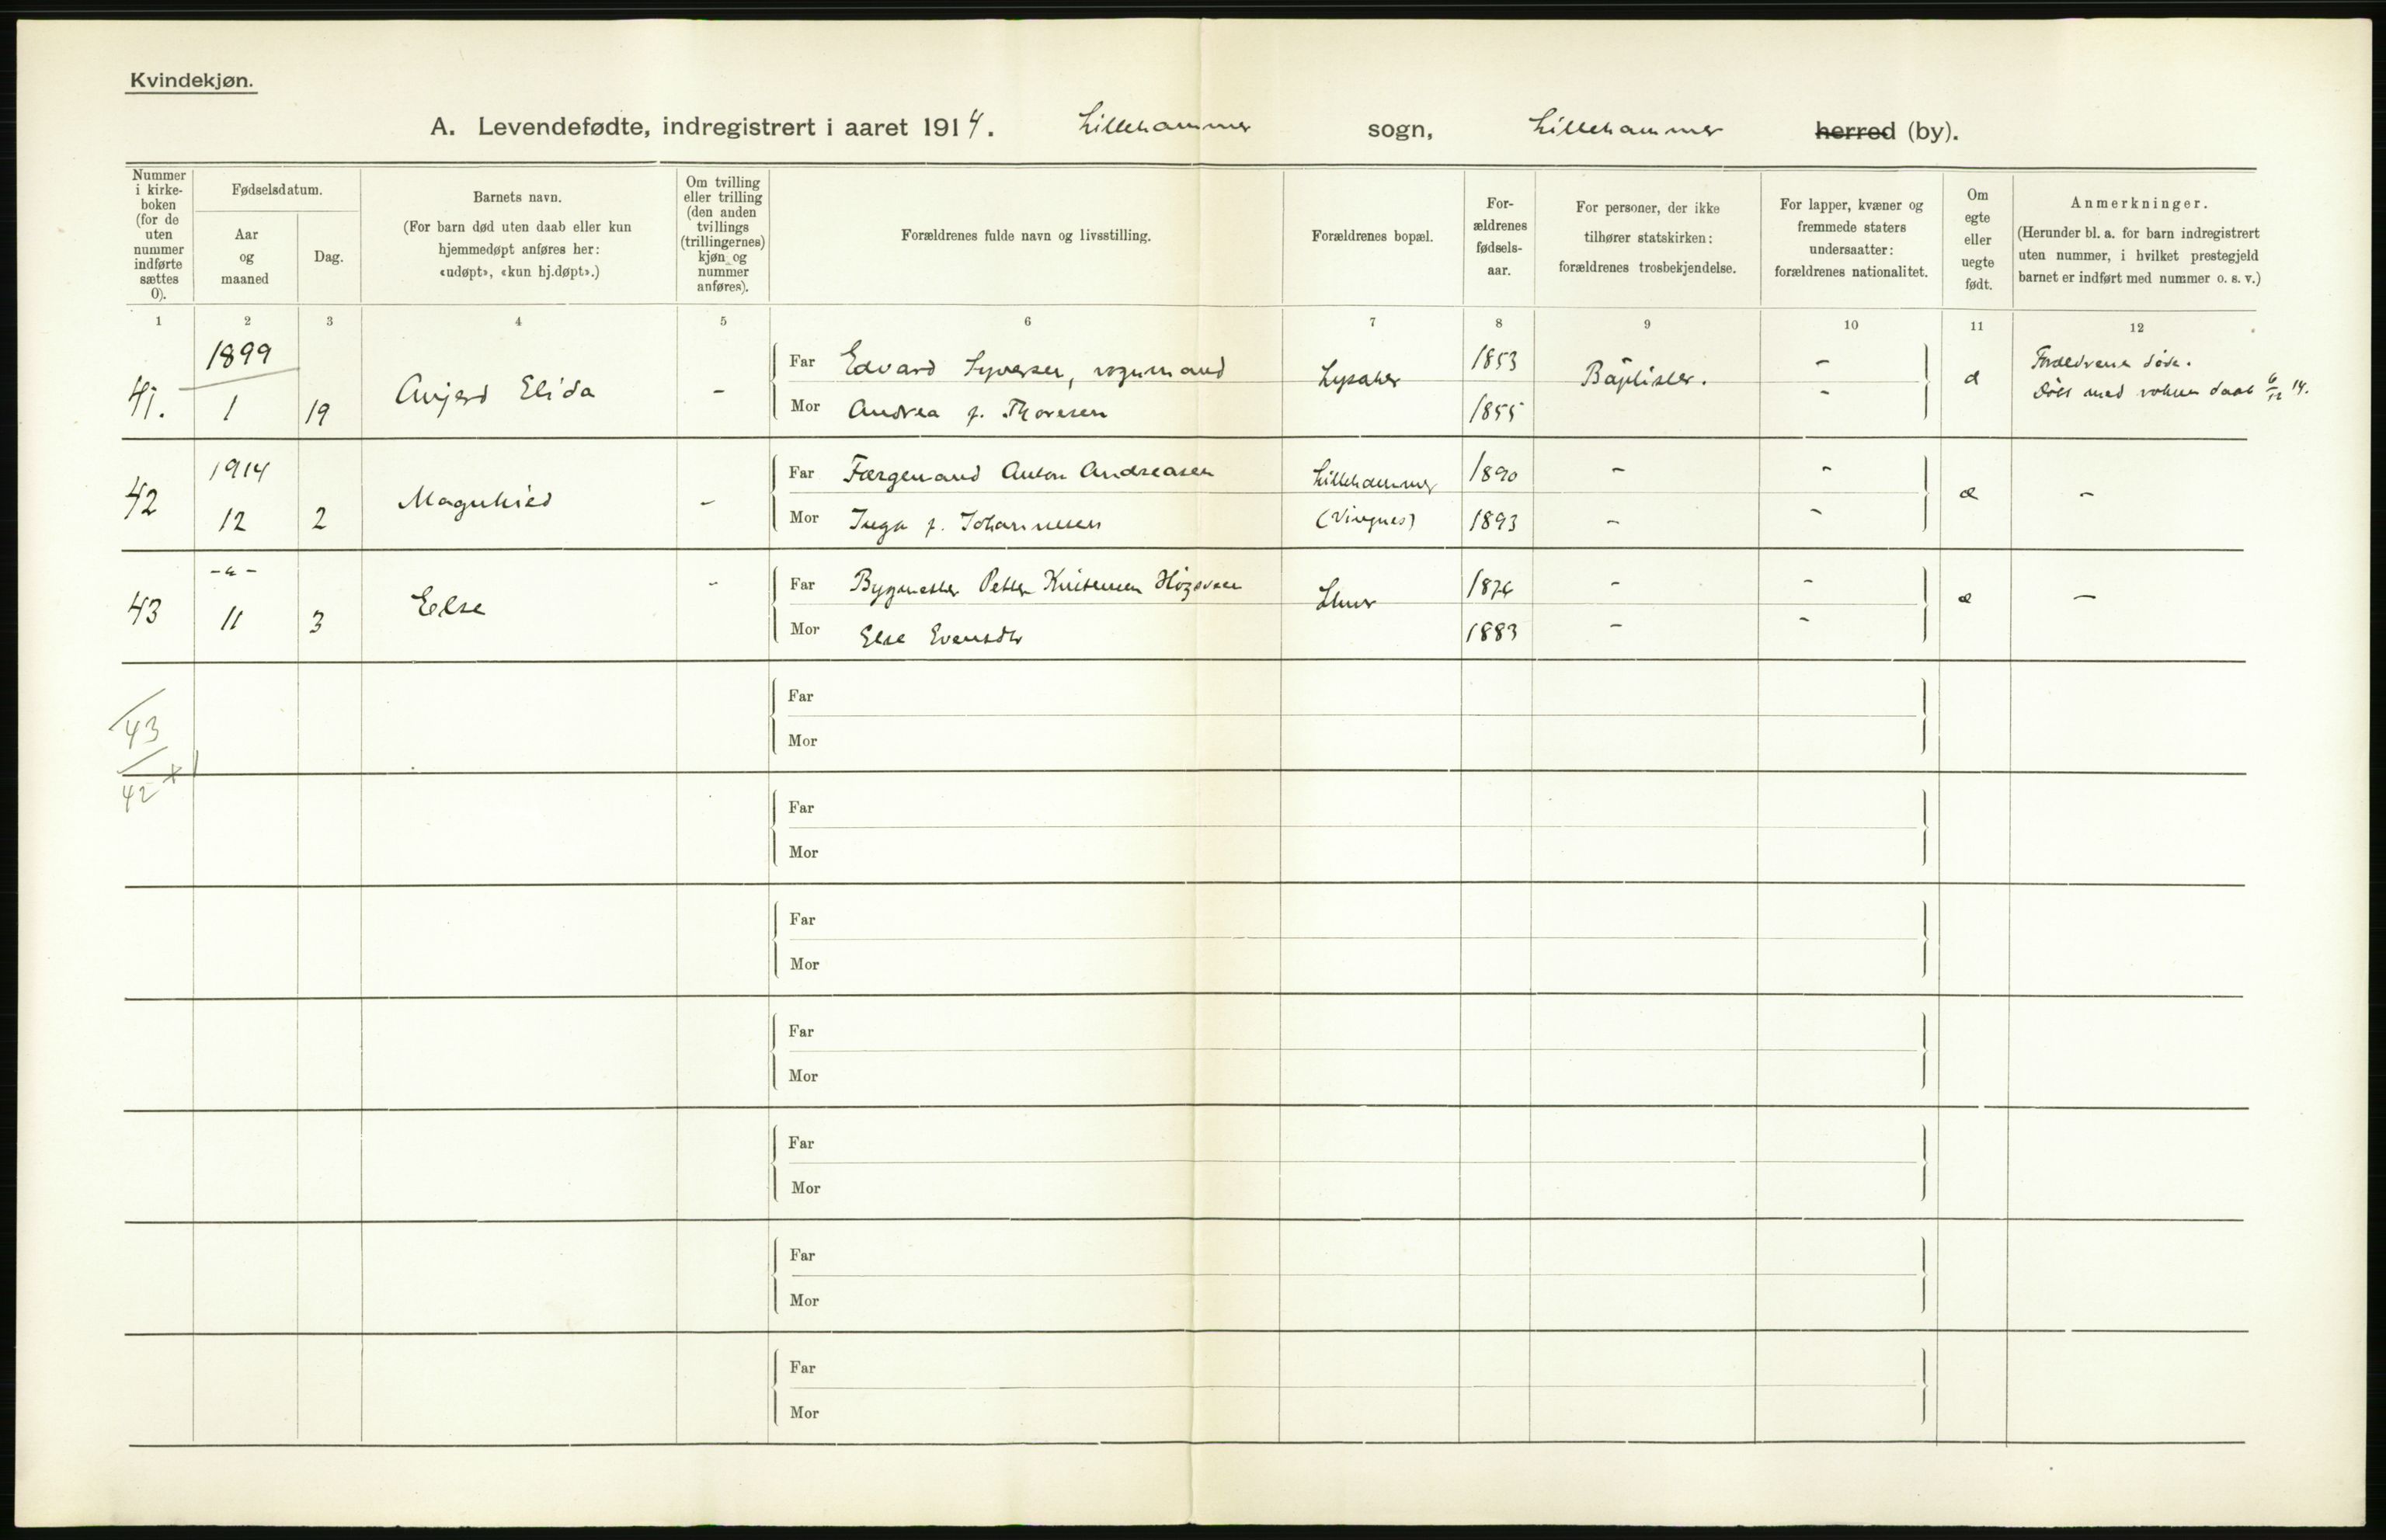 Kvindekjøn.
A. Levendefødte, indregistrert i aaret 1914. Lillehammer sogn, Lillehammer herred (by).
Nummer i kirke- boken (for de uten nummer indførte sættes 0).
Fødselsdatum.
Aar og maaned
Dag.
Barnets navn.
(For barn død uten daab eller kun hjemmedøpt anføres her: «udøpt», «kun hj.døpt».)
Om tvilling eller trilling (den anden tvillings (trillingernes) kjøn og nummer anføres).
Forældrenes fulde navn og livsstilling.
Forældrenes bopæl.
For- ældrenes fødsels- aar.
For personer, der ikke tilhører statskirken: forældrenes trosbekjendelse.
For lapper, kvæner og fremmede staters undersaatter: forældrenes nationalitet.
Om egte eller uegte født.
Anmerkninger.
(Herunder bl. a. for barn indregistrert uten nummer, i hvilket prestegjeld barnet er indført med nummer o. s. v.)
1 2 3 4 5 6 7 8 9 10 11 12
41. 1899 1 19 Elida -
Far Edvard Syversen, vognmand Lysaker 1853 Baptister. - æ Forældrene døde.
Mor Andrea f. Thoresen 1855 - Døbt med voksen daab 6/12 14.
42 1914 12 2 Magnhied -
Far Færgemand Anton Andreasen Lillehammer 1890 - - æ -
Mor Inga f. Johannesen (Vingnes) 1893 - -
43 -"- 11 3 Else -
Far Bygmester Petter Kristensen 1876 - - æ -
Mor Else Evensdtr 1883 - -
Far
Mor
43
42 + 1
Far
Mor
Far
Mor
Far
Mor
Far
Mor
Far
Mor
Far
Mor